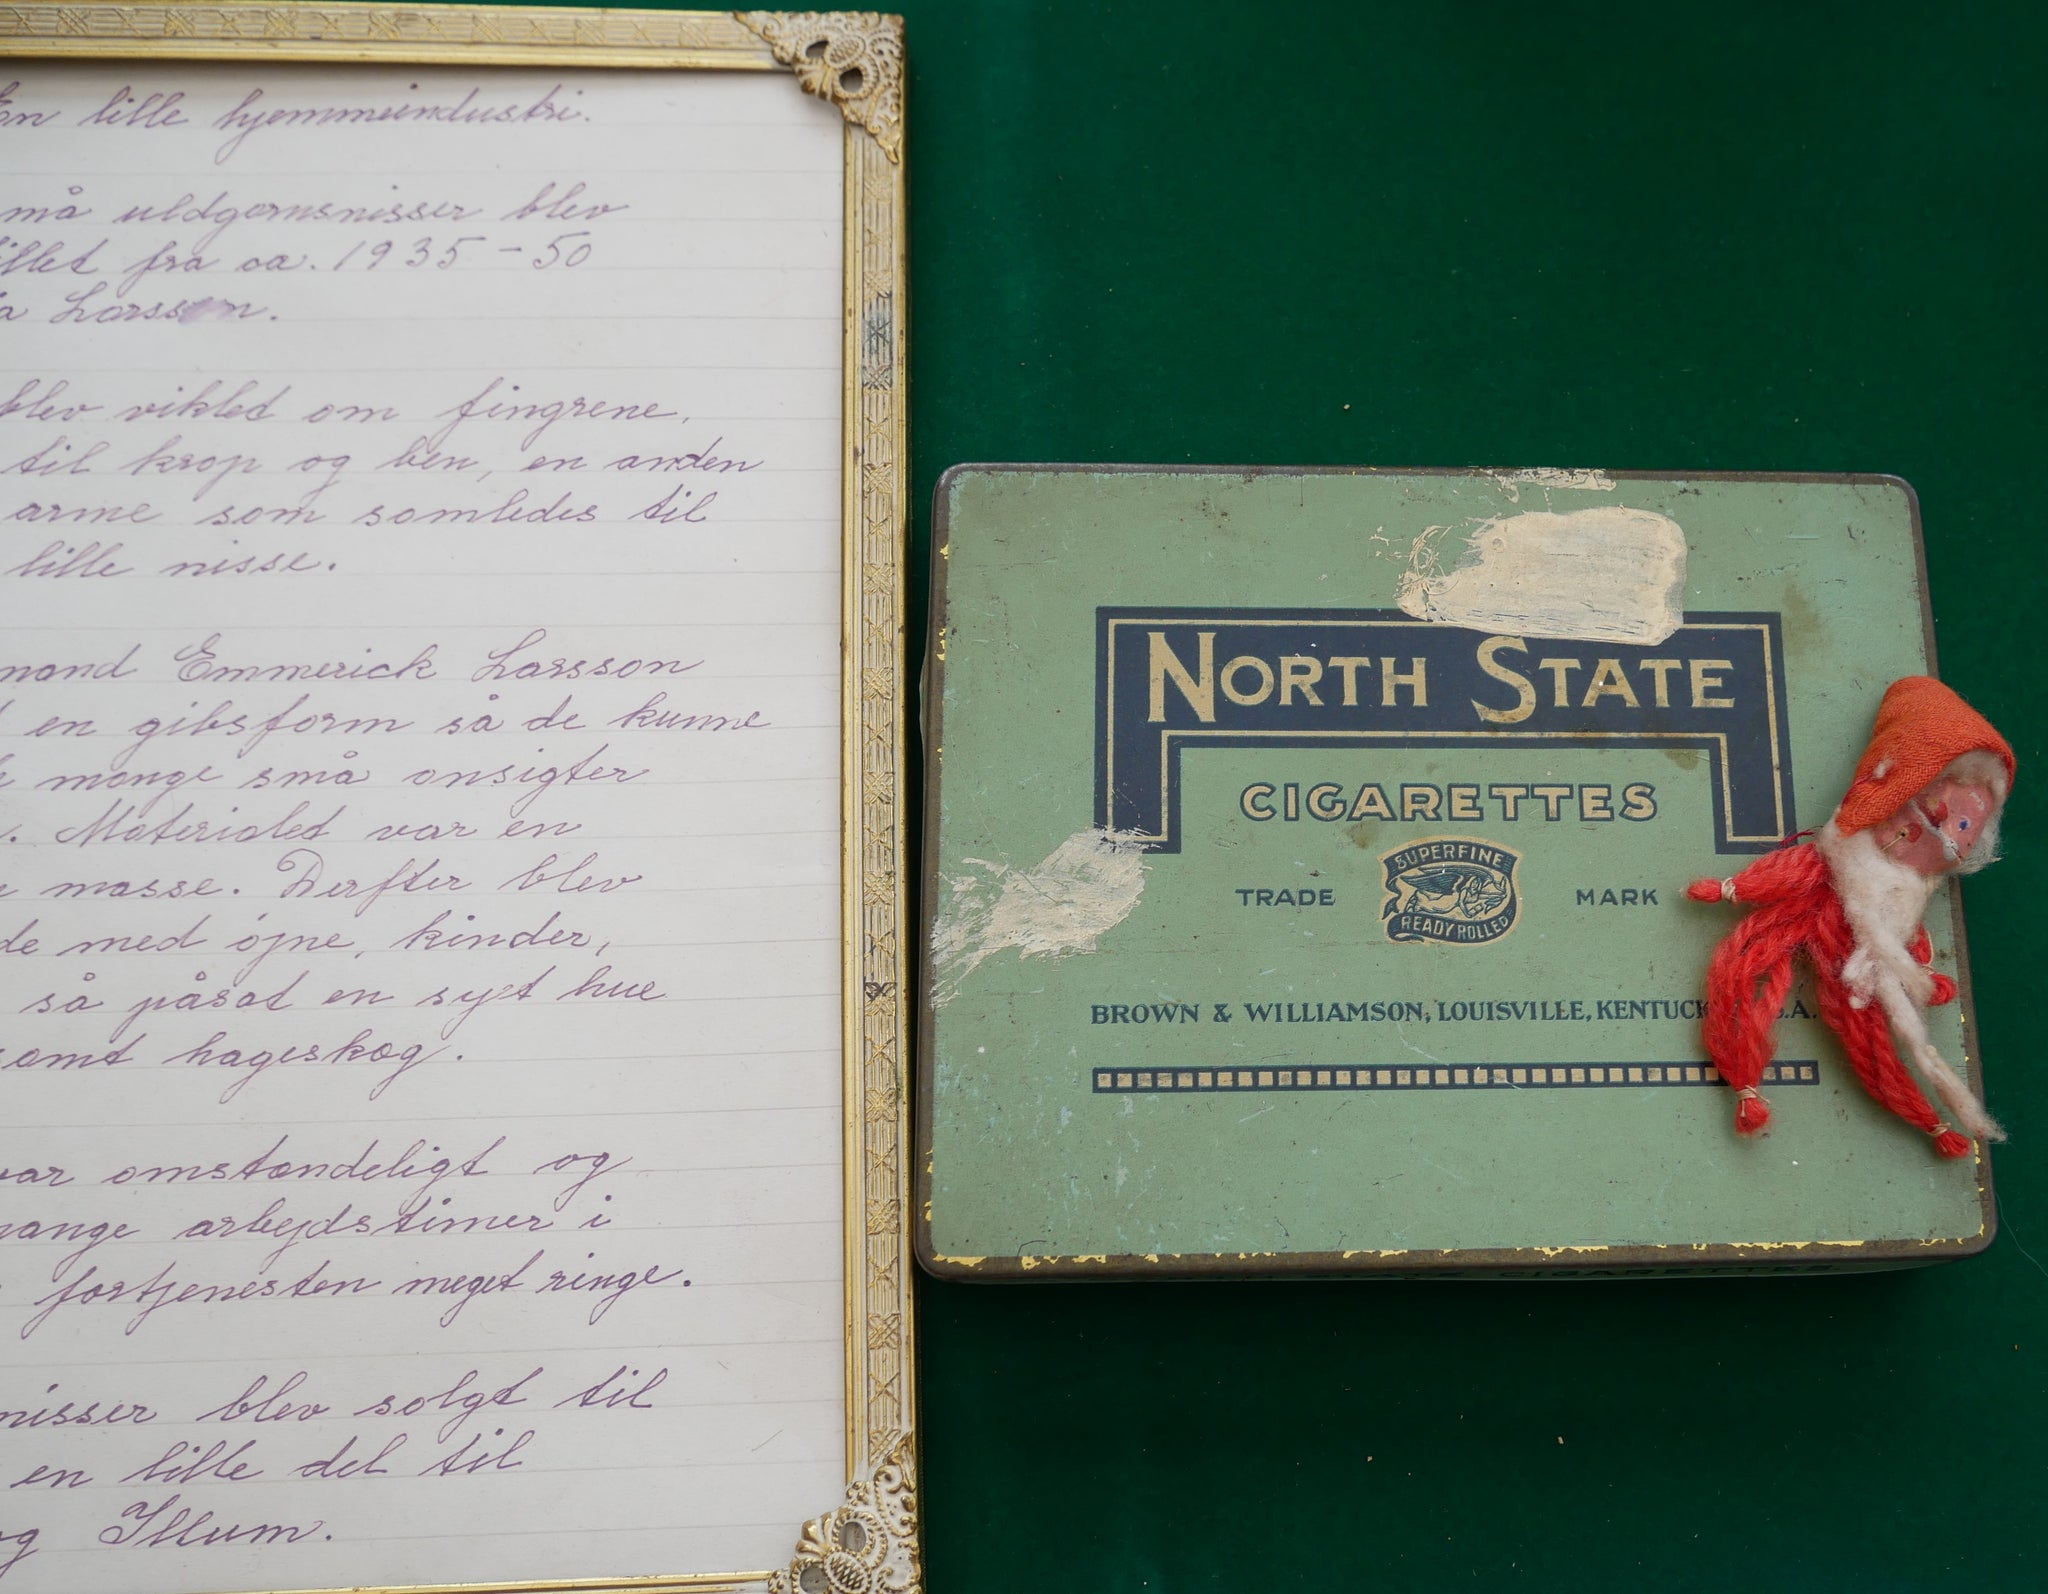 En lille hjemmeindustri.
må uldgarnsnisser blev
illet fra ca. 1935-50
a Larsson.
blev viklet om fingrene,
til krop og ben, en anden
arme som samledes til
lille nisse.
mand Emmerick Larsson
en gibsform så de kunne
mange små ansigter
. Materialet var en
masse. Derfter blev
de med øjne, kinder,
så påsat en syet hue
samt hageskæg.
var omstændeligt og
mange arbejdstimer i
fortjenesten meget ringe.
nisser blev solgt til
en lille del til
og Illum.
NORTH STATE
CIGARETTES
SUPERFINE
TRADE MARK
READY ROLLED
BROWN & WILLIAMSON, LOUISVILLE, KENTUCK .A.
CIGARETTES